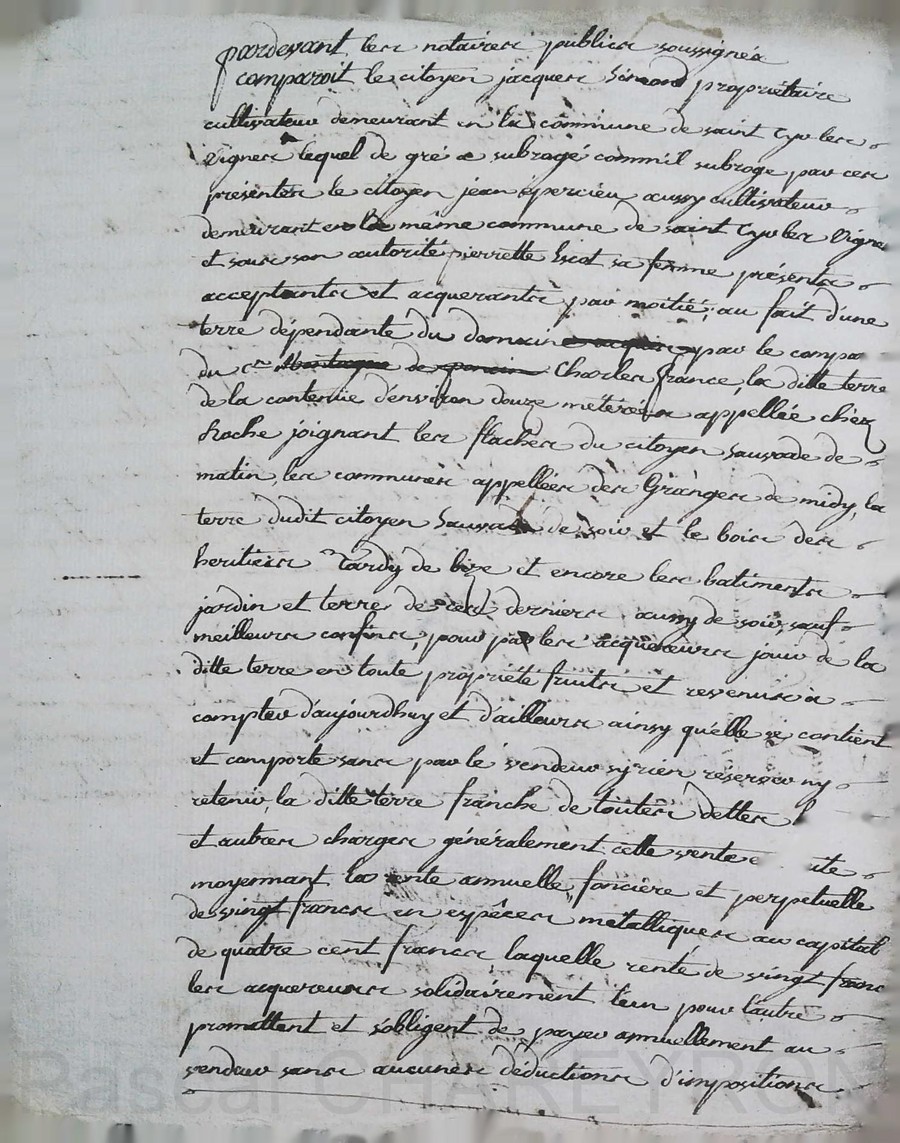 pardevant les notaires publics soussignés
comparoit le citoyen jacques Simond propriétaire
cultivateur demeurant en la commune de saint Cyr les
Vignes lequel de gré a subrogé comm'il subroge par ces
présentes le citoyen jean épercieu aussy cultivateur
demeurant en la même commune de saint Cyr les Vigne
et sous son autorité pierrette Siot sa femme présents
acceptants et acquerants par moitié; au fait d'une
terre dépendante du domaine par le compa
du c.en Charles france, la ditte terre
de la contenüe d'environ douze meterées appellée chéz
hoche joignant les flaches du citoyen sauvade de
matin, les communes appellées des Granges de midy, la
terre dudit citoyen Sauvade de soir et le bois des
heritiers Tardy de bize et encore les batiments
jardin et terre de ces derniers aussy de soir, sauf
meilleurs confins, pour par les acquereurs jouir de la
ditte terre en toute propriété fruits et revenus a
compter d'aujourdhuy et d'ailleurs ainsy qu'elle se contient
et comporte sans par le vendeur sy rien réserver ny
retenir, la ditte terre franche de toutes dettes
et autres charges généralement cette vente ite
moyennant la rente annuelle, foncière et perpetuelle
de vingt francs en espêces metalliques au capital
de quatre cent francs laquelle rente de vingt franc
les acquereurs solidairement l'un pour l'autre
promettent et s'obligent de payer annuellement au
vendeur sans aucunes déductions d'impositions
Pascal CHAREYRON